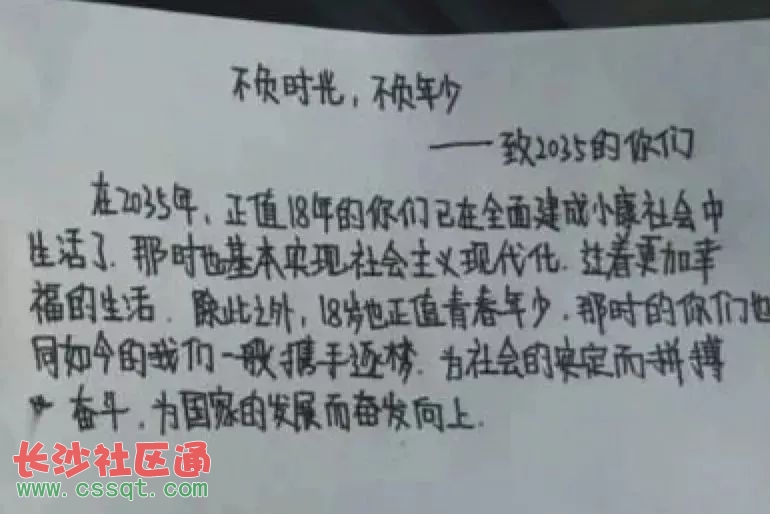 不负时光，不负年少
——致2035的你们
在2035年，正值18年的你们已在全面建成小康社会中
生活了.那时也基本实现社会主义现代化.过着更加幸
福的生活.除此之外，18岁也正值青春年少.那时的你们也
同如今的我们一般携手逐梦.为社会的安定而拼搏
奋斗.为国家的发展而奋发向上.
长沙社区通
www.cssqt.com